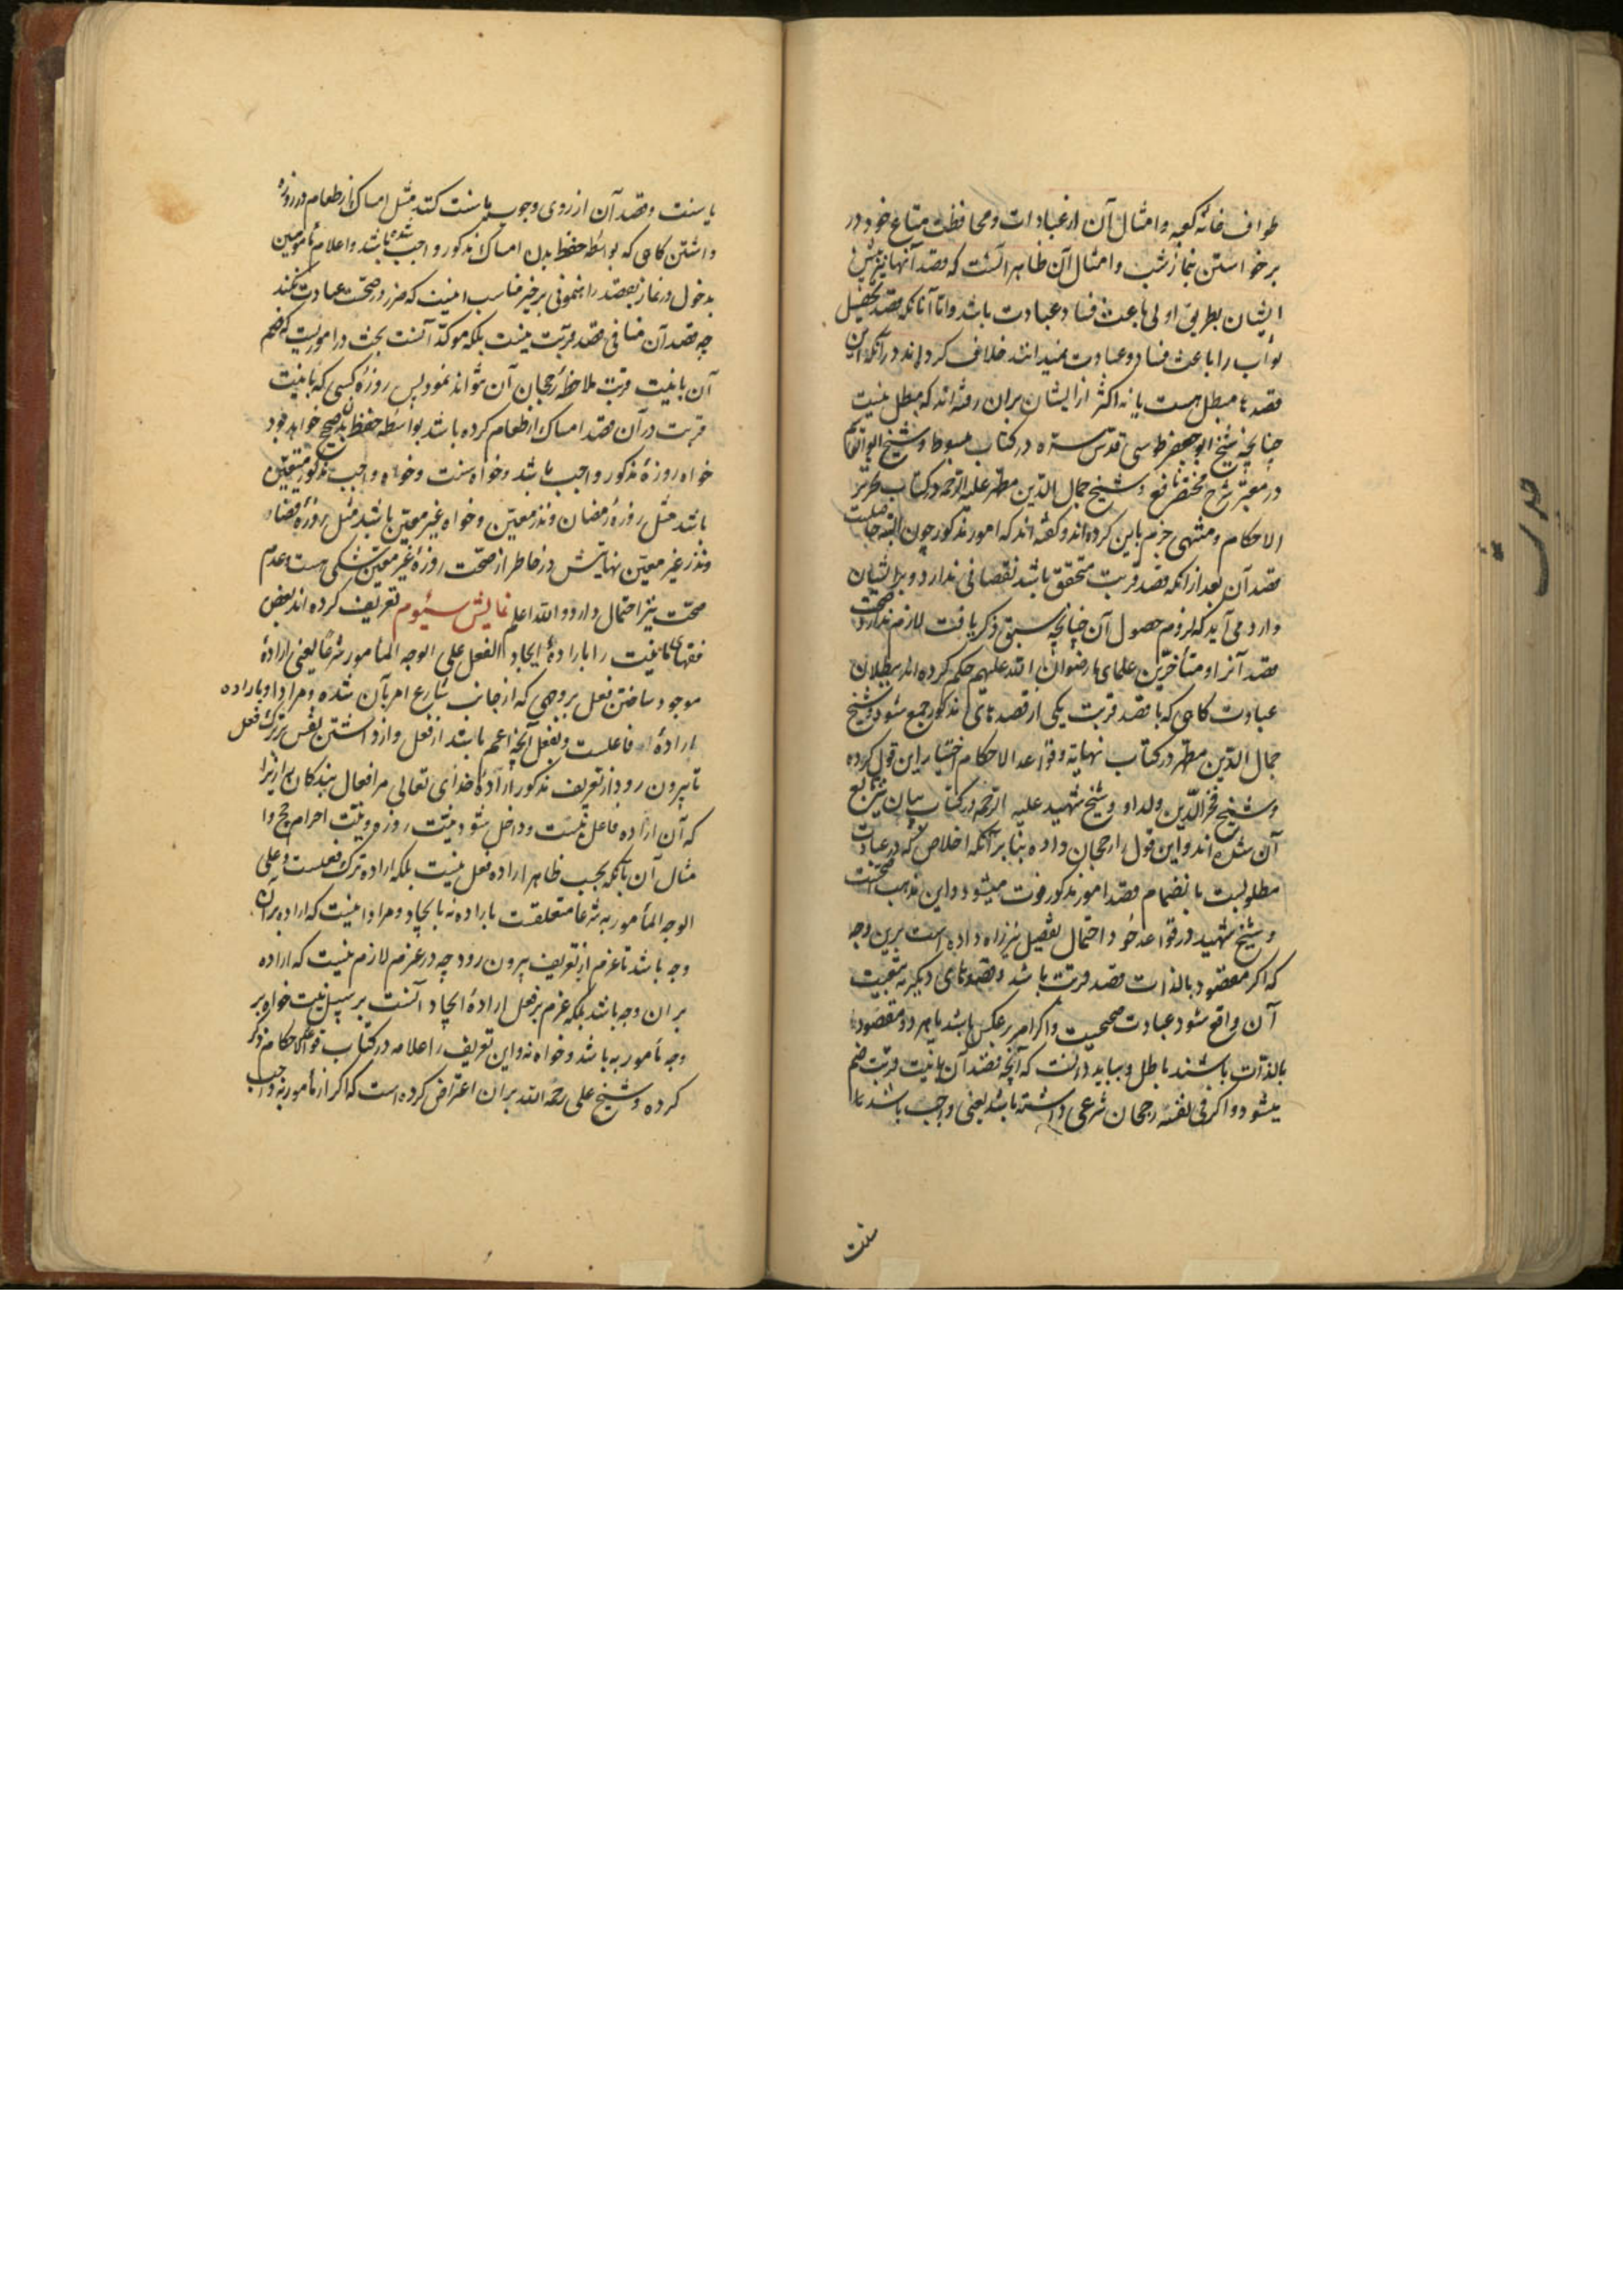 طواف خانه کعبه و امثال آن از عبادات و محافظت متاع خود در
برخواستن بنماز شب و امثال آن ظاهر آنست که قصد آنها نیز پیش
ایشان بطریق اولی باعث فساد عبادت باشد و اما آنانکه قصد تحصیل
ثواب را باعث فساد عبادت نمیدانند خلاف کرده‌اند در آنکه این
قصدها مبطل هست یا نه اکثر از ایشان بران رفته‌اند که مبطل نیست
چنانچه شیخ ابو جعفر طوسی قدس سره در کتاب مبسوط و شیخ ابو القاسم
در معتبر شرح مختصر نافع و شیخ جمال الدین مطهر علیه الرحمه در کتاب تحریر
الاحکام و منتهی جزم باین کرده‌اند و گفته‌اند که امور مذکور چون البته حاصلست
قصد آن بعد از انکه قصد قربت متحقق باشد نقصانی ندارد و بر ایشان
وارد می آید که لزوم حصول آن چنانچه سبق ذکر یافت لازم ندارد صحت
قصد آنرا و متأخرین علمای ما رضوان الله علیهم حکم کرده‌اند ببطلان
عبادت گاهی که با قصد قربت یکی از قصدهای مذکور جمع شود و شیخ
جمال الدین مطهر در کتاب نهایة و قواعد الاحکام اختیار این قول کرده
و شیخ فخر الدین ولد او و شیخ شهید علیه الرحمه در کتاب بیان نیز تابع
آن شده‌اند و این قول را رجحان داده بنا بر آنکه اخلاص که در عبادت
مطلوبست بانضمام قصد امور مذکور فوت میشود و این مذهب صحتست
و شیخ شهید در قواعد خود احتمال تفصیل نیز راه داده است برین وجه
که اگر مقصود بالذات قصد قربت باشد و قصدهای دیگر به تبعیت
آن واقع شود عبادت صحیحست و اگر امر بر عکس باشد یا هر دو مقصود
بالذات باشند باطل و بباید دانست که آنچه قصد آن با نیت قربت ضم
میشود اگر فی نفسه رجحان شرعی داشته باشد یعنی واجب باشد یا
سنت
یا سنت و قصد آن از روی وجوب یا سنت کند مثل امساک از طعام در روزه
داشتن گاهی که بواسطه حفظ بدن امساک مذکور واجب شده باشد و اعلام مأمومین
بدخول در نماز بقصد راهنمونی بر خیر مناسب اینست که ضرر در صحت عبادت نکند
چه قصد آن منافی قصد قربت نیست بلکه موکد آنست بحث در اموریست که ضم
آن با نیت قربت ملاحظه رجحان آن نتواند نمود پس روزه کسی که با نیت
قربت در آن قصد امساک از طعام کرده باشد بواسطه حفظ بدن صحیح خواهد بود
خواه روزه مذکور واجب باشد و خواه سنت و خواه واجب مذکور متعین
باشد مثل روزه رمضان و نذر معین و خواه غیر معین باشد مثل روزه قضا
و نذر غیر معین نهایتش در خاطر از صحت روزه غیر معین شکی هست عدم
صحت نیز احتمال دارد و الله اعلم نمایش سیوم تعریف کرده‌اند بعض
فقهای ما نیت را باراده ایجاد الفعل علی الوجه المأمور شرعا یعنی اراده
موجود ساختن فعل بر وجهی که از جانب شارع امر بآن شده و مراد او باراده
اراده فاعلست و بفعل آنچه اعم باشد از فعل و از داشتن نفس بر ترک فعل
تا بیرون رود از تعریف مذکور اراده خدای تعالی مر افعال بندگان را زیرا
که آن اراده فاعل نیست و داخل شود نیت روزه و نیت احرام حج و ا
مثال آن با آنکه بحسب ظاهر اراده فعل نیست بلکه اراده ترک فعلست و علی
الوجه المأمور به شرعا متعلقست باراده نه بایجاد و مراد اینست که اراده بر آن
وجه باشد تا عزم از تعریف بیرون رود چه در عزم لازم نیست که اراده
بر ان وجه باشد بلکه عزم بر فعل اراده ایجاد آنست بر سبیل نیت خواه بر
وجه مأمور به باشد و خواه نه و این تعریف را علامه در کتاب قواعد الاحکام ذکر
کرده و شیخ علی رحمه الله بر ان اعتراض کرده است که اگر از مأمور به واجب